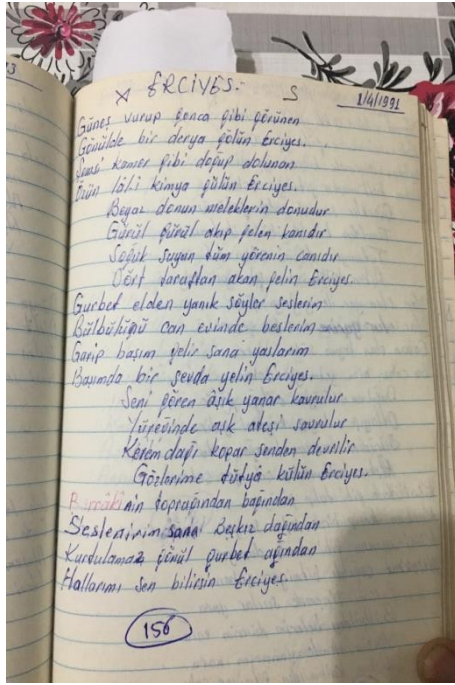 x ERCİYES. S 1/4/1991
Güneş vurup gonca gibi görünen
Gönülde bir derya gölün Erciyes.
Şemsi kamer gibi doğup dolunan
Özün lâl-i kimya gülün Erciyes.
Beyaz donun meleklerin donudur
Gürül gürül akıp gelen kanıdır
Soğuk suyun tüm yörenin canıdır
Dört taraftan akan selin Erciyes.
Gurbet elden yanık söyler seslerim
Bülbülüğnü can evinde beslerim
Garip başım gelir sana yaslarım
Başımda bir sevda yelin Erciyes.
Seni gören âşık yanar kavrulur
Yüreğinde aşk ateşi savrulur
Kerem dağı kopar senden devrilir
Gözlerime sürme külün Erciyes.
nin toprağından bağından
Seslenirim sana Beşkız dağından
Kurtulamaz gönül gurbet ağından
Hallarımı sen bilirsin Erciyes.
156